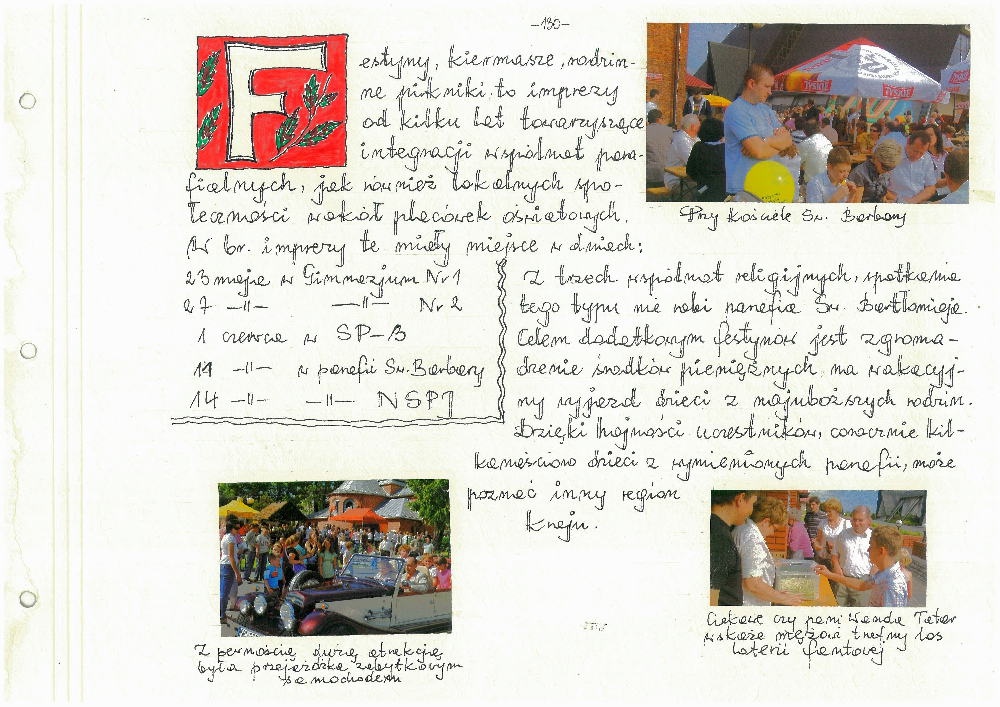 -130-
Festyny, kiermasze, rodzin-
ne pikniki to imprezy
od kilku lat towarzyszące
integracji wspólnot para-
fialnych, jak również lokalnych spo-
łeczności wokół placówek oświatowych.
W br. imprezy te miały miejsce w dniach:
23 maja w Gimnazjum Nr 1
27 -||- -||- Nr 2
1 czerwca w SP-3
14 -||- w parafii Św. Barbary
14 -||- -||- NSPJ
Przy kościele Św. Barbary
Z trzech wspólnot religijnych, spotkania
tego typu nie robi parafia Św. Bartłomieja.
Celem dodatkowym festynów jest zgroma-
dzenie środków pieniężnych na wakacyj-
ny wyjazd dzieci z najuboższych rodzin.
Dzięki hojności uczestników, corocznie kil-
kanaścioro dzieci z wymienionych parafii, może
poznać inny region
kraju.
Z pewnością dużą atrakcją
była przejażdżka zabytkowym
samochodem
Ciekawe czy pani Wanda Tatar
wskaże mężowi trafny los
loterii fantowej
TYSKIE
TYSKIE